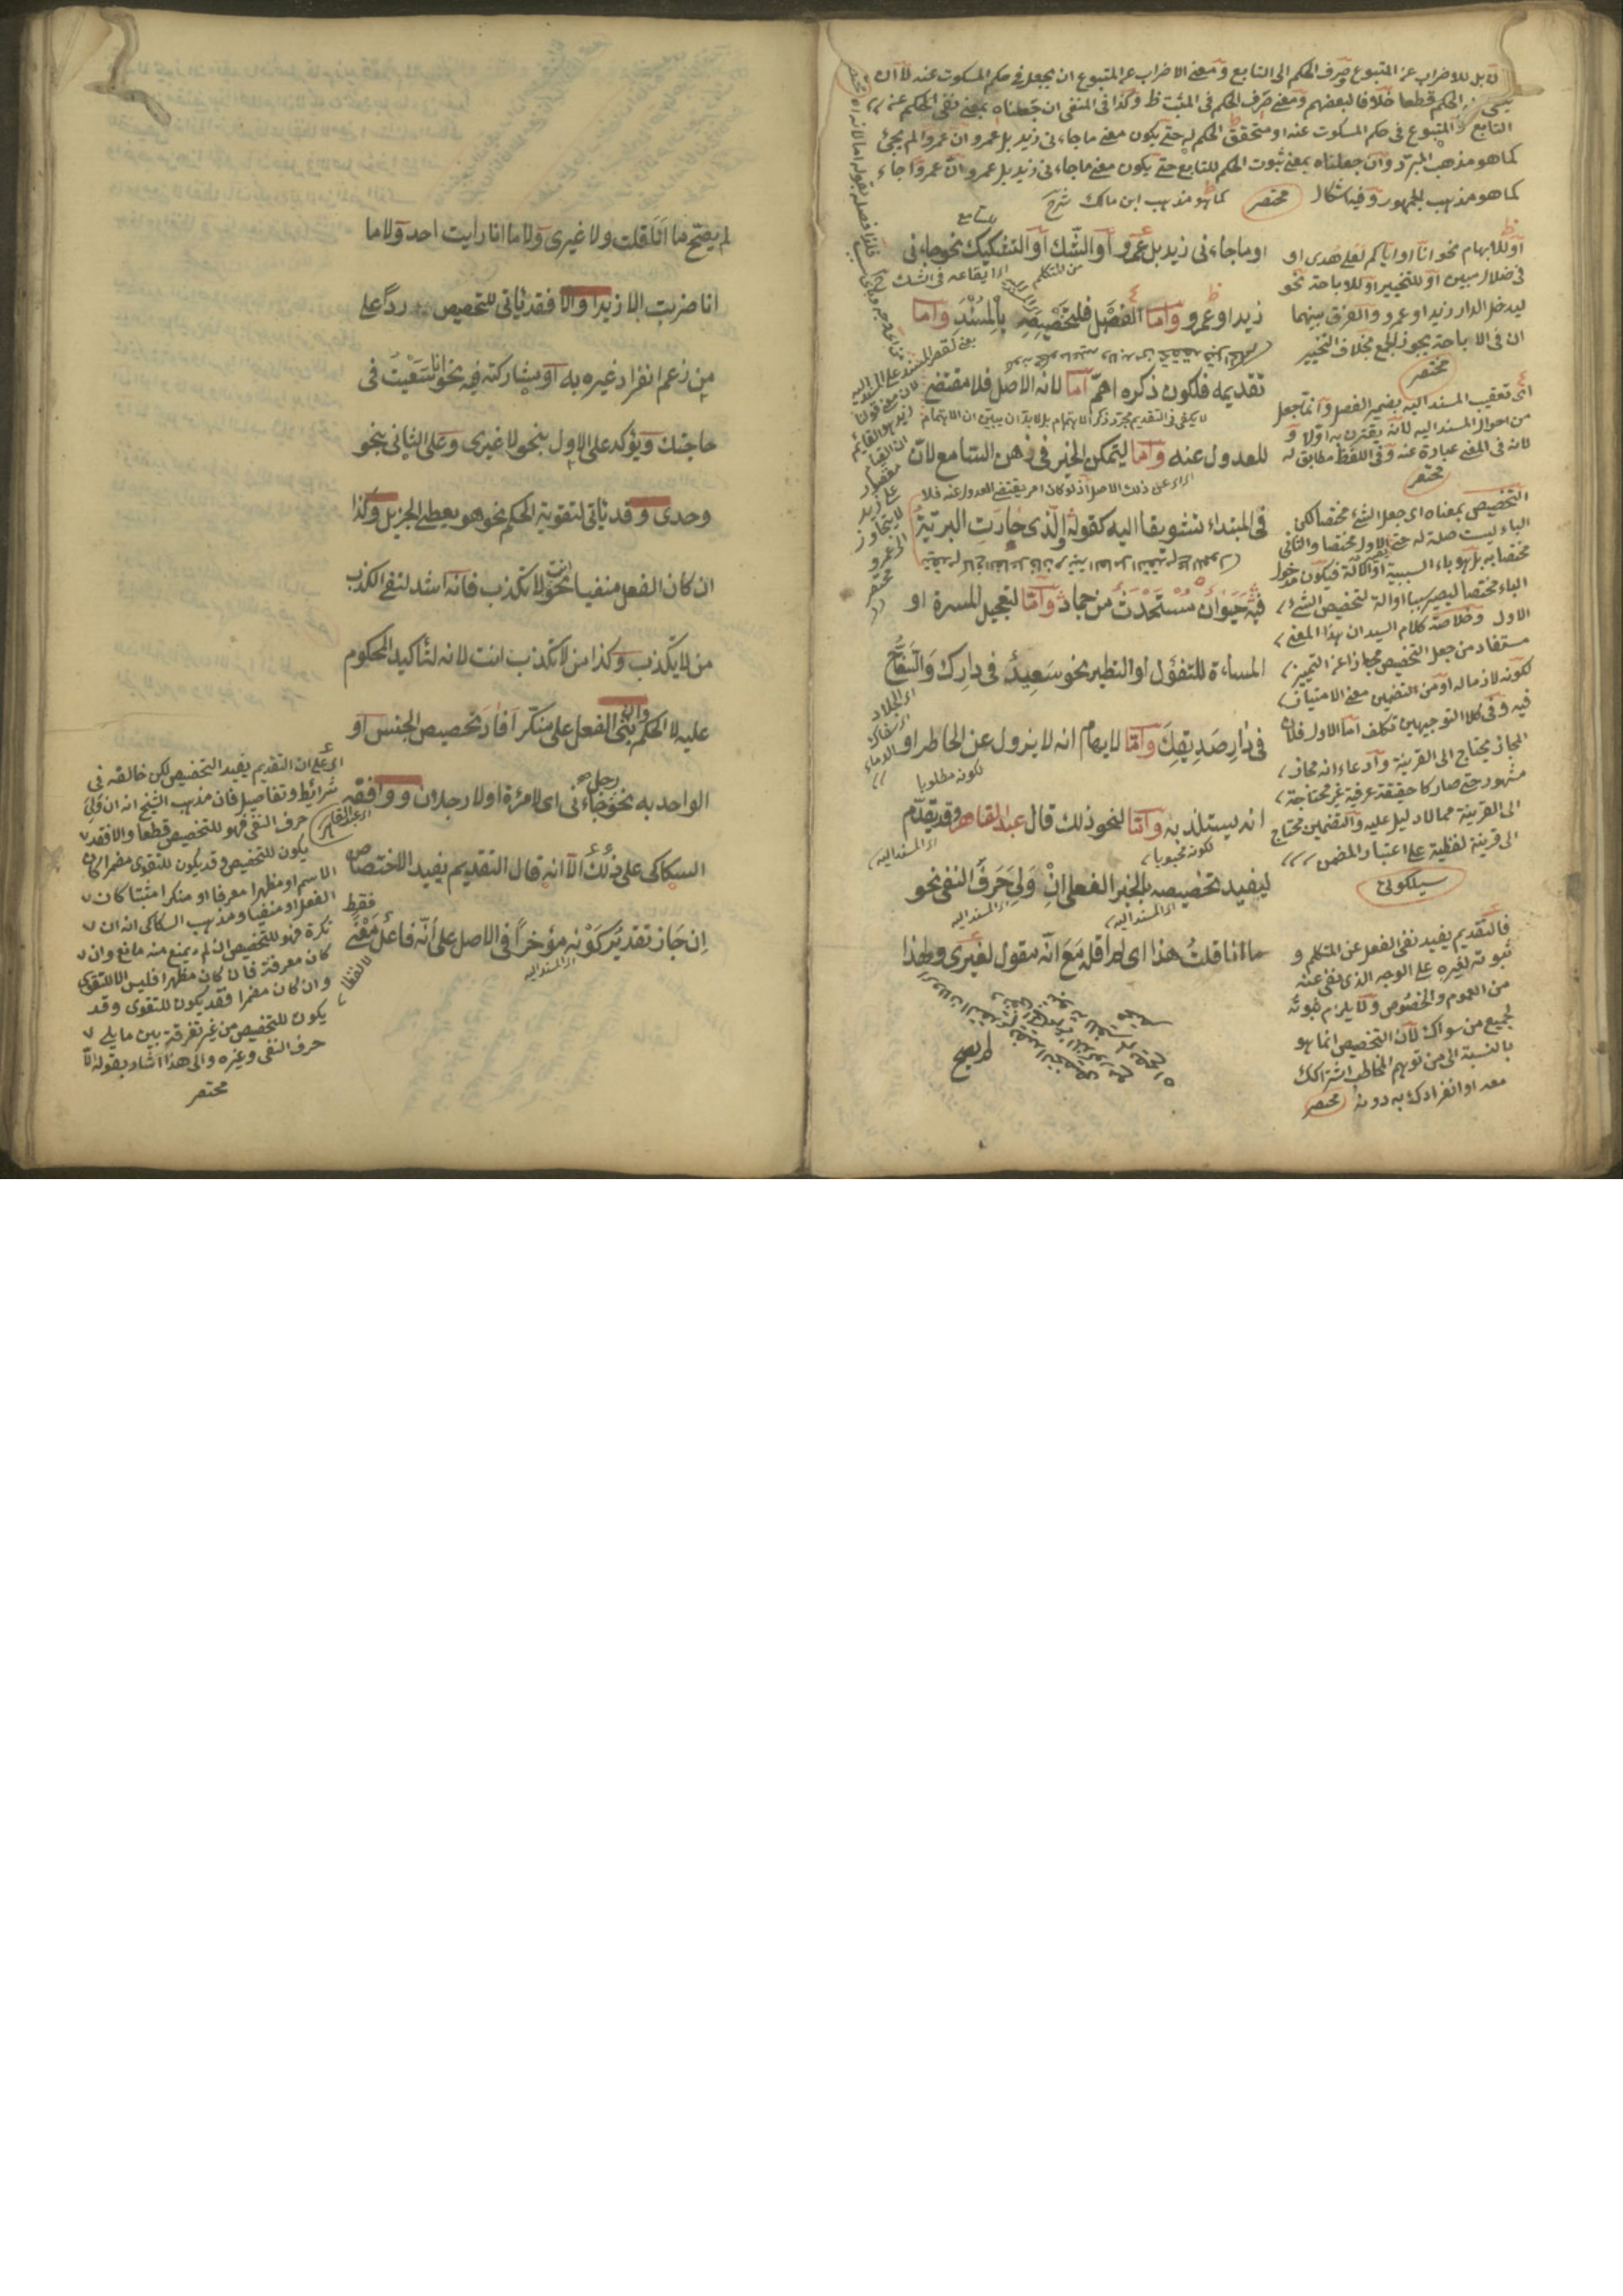 بل للاضراب عن المتبوع وصرف الحكم الى التابع ومعنى الاضراب عن المتبوع ان يجعل فى حكم المسكوت عنه لا ان
الحكم قطعا خلافا لبعضهم ومعنى صرف الحكم فى المثبت ظ وكذا فى المنفى ان جعلناه بمعنى نفى الحكم عن
التابع والمتبوع فى حكم المسكوت عنه او متحقق الحكم له حتى يكون معنى ما جاءنى زيد بل عمرو ان عمروا لم يجئ
كما هو مذهب المبرد وان جعلناه بمعنى ثبوت الحكم للتابع حتى يكون معنى ما جاءنى زيد بل عمرو ان عمروا جاء
كما هو مذهب الجمهور وفيه اشكال مختصر
كما هو مذهب ابن مالك شرح
او ما جاءنى زيد بل عمرو او الشك او التشكيك نحو جاءنى
زيد او عمرو واما الفصل فلتخصيصه بالمسند واما
تقديمه فلكون ذكره اهم اما لانه الاصل فلا مقتضى
لا يكفى فى التقديم مجرد ذكر الاهتمام بل لا بد ان يبين ان الاهتمام
للعدول عنه واما ليتمكن الخبر فى ذهن السامع لان
فى المبتداء تشويقا اليه كقوله والذى حارت البرية
فيه حيوان مستحدث من جماد واما لتعجيل المسرة او
المساءة للتفؤل او التطير نحو سعيد فى دارك والسفاح
فى دار صديقك واما لايهام انه لا يزول عن الخاطر او
لكونه مطلوبا
انه يستلذ به واما لنحو ذلك قال عبد القاهر وقد يقدم
لكونه محبوبا
اى المسند اليه
ليفيد تخصيصه بالخبر الفعلى ان ولى حرف النفى نحو
اى المسند اليه
اى المسند اليه
ما انا قلت هذا اى لم اقله مع انه مقول لغيرى ولهذا
لم يصح
او للابهام نحو انا او اياكم لعلى هدى او
فى ضلال مبين او للتخيير او للاباحة نحو
ليدخل الدار زيد او عمرو والفرق بينهما
ان فى الاباحة يجوز الجمع بخلاف التخيير
مختصر
اى تعقيب المسند اليه بضمير الفصل وانما جعل
من احوال المسند اليه لانه يقترن به اولا و
لانه فى المعنى عبارة عنه وفى اللفظ مطابق له
مختصر
التخصيص بمعناه اى جعل الشئ مختصا لكن
الباء ليست صلة له حتى الاول مختصا والثانى
مختصا به بل هو باء السببية او الآلة فيكون مدخول
الباء مختصا ليصير سببا او الة لتخصيص الشئ
الاول وخلاصة كلام السيد ان هذا المعنى
مستفاد من جعل التخصيص مجازا عن التمييز
لكونه لازما له او من التضمين معنى الامتياز
فيه وفى كلا التوجيهين تكلف اما الاول فلان
المجاز يحتاج الى القرينة وادعاء انه مجاز
مشهور حتى صار كا حقيقة عرفية غير محتاجة
الى القرينة مما لا دليل عليه والتضمين محتاج
الى قرينة لفظية على اعتبار المضمن
سيلكوتى
فالتقديم يفيد نفى الفعل عن المتكلم و
ثبوته لغيره على الوجه الذى نفى عنه
من العموم والخصوص ولا يلزم ثبوته
لجميع من سواك لان التخصيص انما هو
بالنسبة الى من توهم المخاطب اشتراكك
معه او انفرادك به دونه مختصر
لم يصح ما انا قلت ولا غيرى ولا ما انا رايت احد ولا ما
انا ضربت الا زيدا والا فقد ياتى للتخصيص ردا على
من زعم انفراد غيره به او مشاركته فيه نحو انا سعيت فى
حاجتك ويؤكد على الاول بنحو لا غيرى وعلى الثانى بنحو
وحدى وقد ياتى لتقوية الحكم نحو هو يعطى الجزيل وكذا
ان كان الفعل منفيا نحو انت لا تكذب فانه اشد لنفى الكذب
من لا يكذب وكذا من لا تكذب انت لانه لتاكيد المحكوم
عليه لا الحكم وان بنى الفعل على منكر افاد تخصيص الجنس او
الواحد به نحو رجل جاءنى اى لا مرئة او لا رجلان ووافقه
السكاكى على ذلك الا انه قال التقديم يفيد الاختصاص
ان جاز تقدير كونه مؤخرا فى الاصل على انه فاعل معنى
فقط
لا لفظا
اى المسند اليه
اى على ان التقديم يفيد التخصيص لكن خالفه فى
شرائط وتفاصيل فان مذهب الشيخ انه ان ولى
حرف النفى فهو للتخصيص قطعا والا فقد
اى عبد القاهر
يكون للتخصيص وقد يكون للتقوى مضمرا كان
الاسم او مظهرا معرفا او منكرا مثبتا كان
الفعل او منفيا ومذهب السكاكى انه ان
نكرة فهو للتخصيص ان لم يمنع منه مانع وان
كان معرفة فان كان مظهرا فليس الا للتقوى
وان كان مضمرا فقد يكون للتقوى وقد
يكون للتخصيص من غير تفرقة بين ما يلى
حرف النفى وغيره والى هذا اشار بقوله الا
مختصر